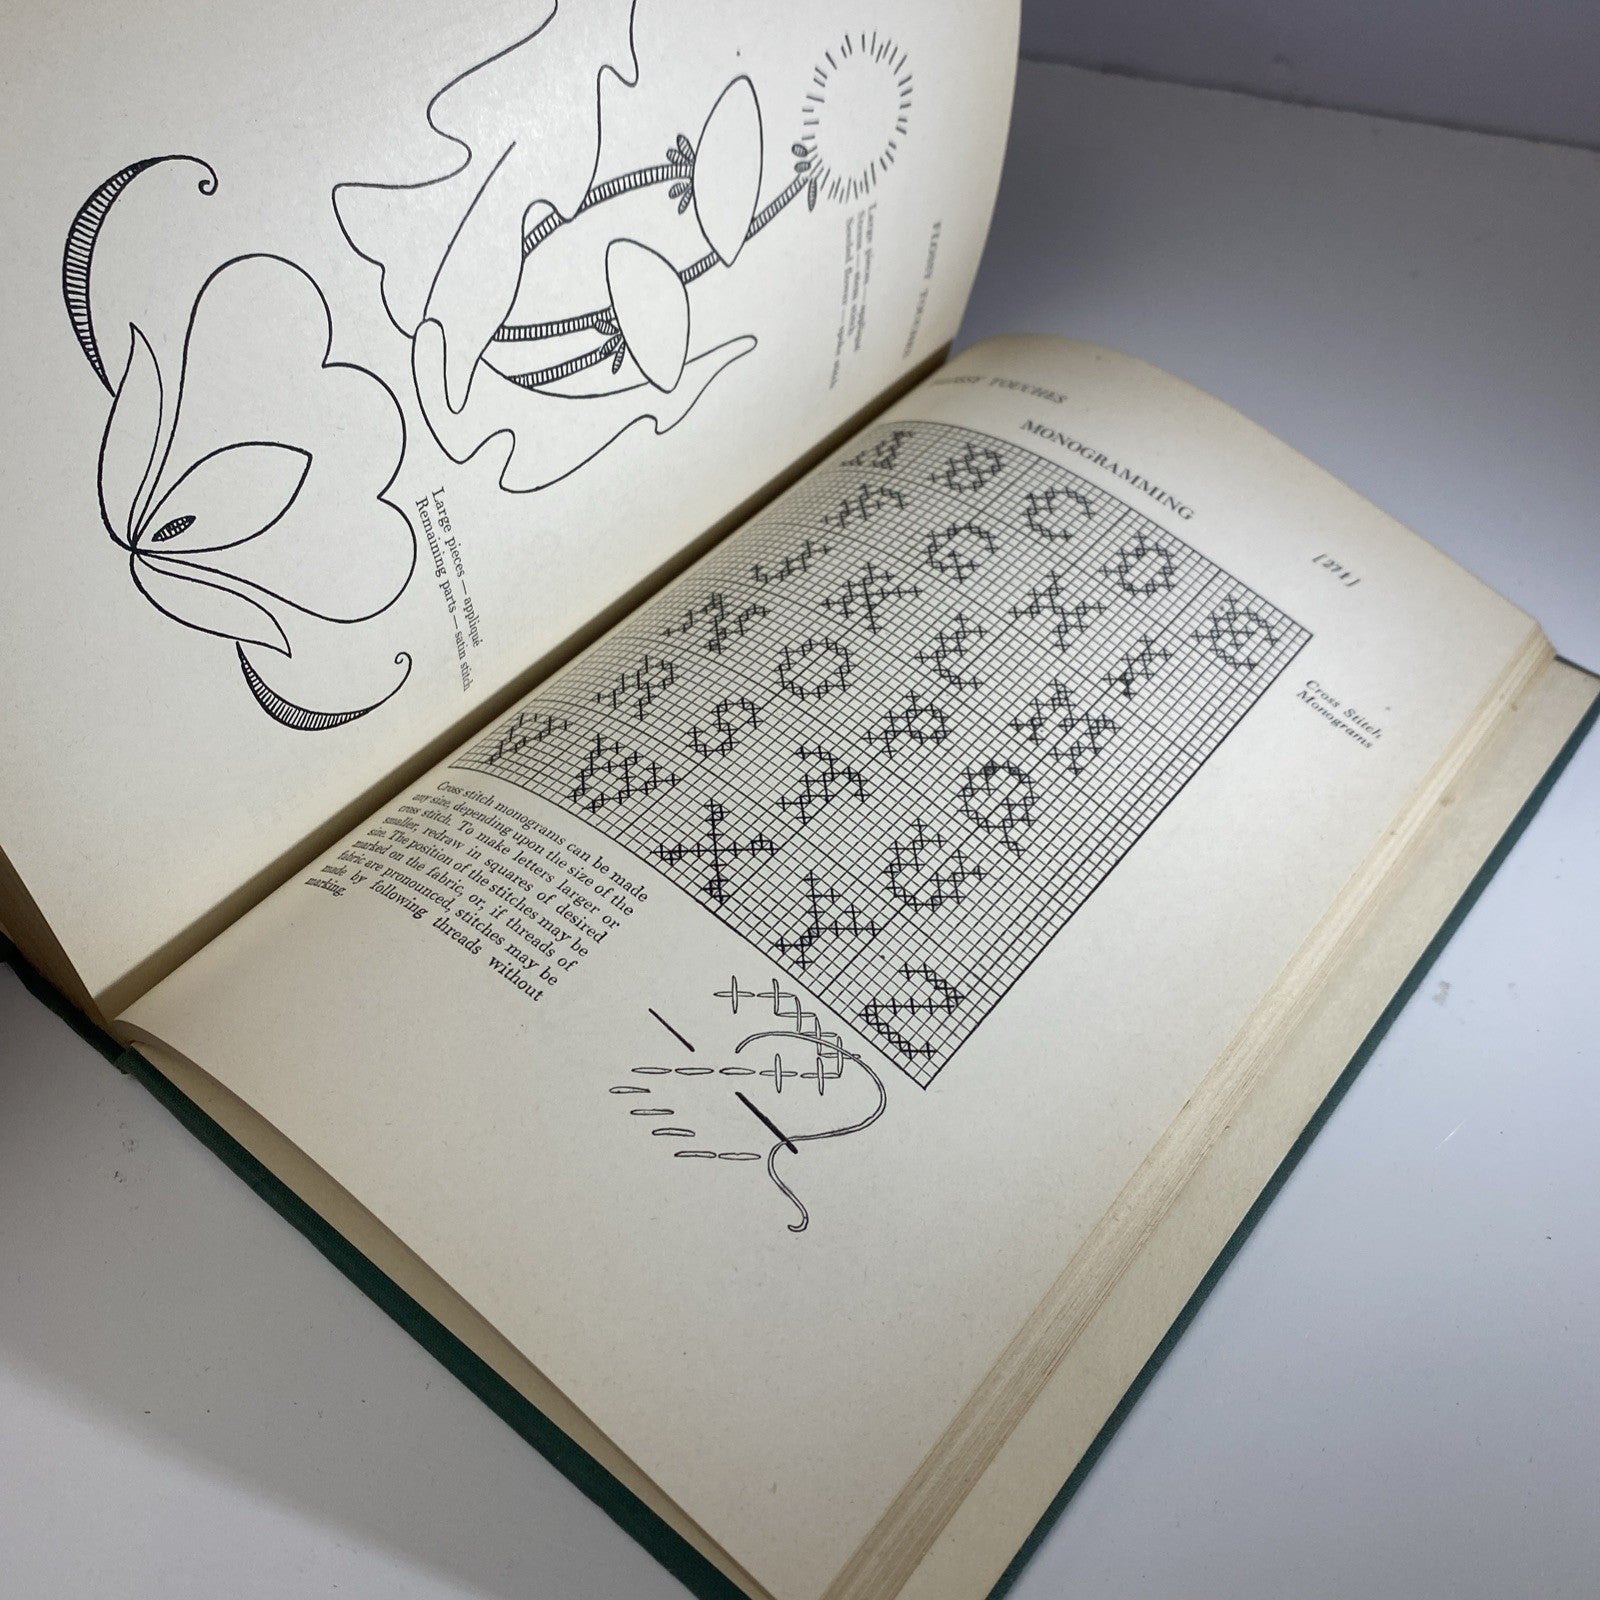 FLOSSY TOUCHES
Large pieces — appliqué
Large pieces — appliqué
Remaining parts — satin stitch
TOUCHES
[271]
MONOGRAMMING
Cross Stitch
Monograms
Cross stitch monograms can be made
any size, depending upon the size of the
cross stitch. To make letters larger or
smaller, redraw in squares of desired
size. The position of the stitches may be
marked on the fabric, or, if threads of
fabric are pronounced, stitches may be
made by following threads without
marking.